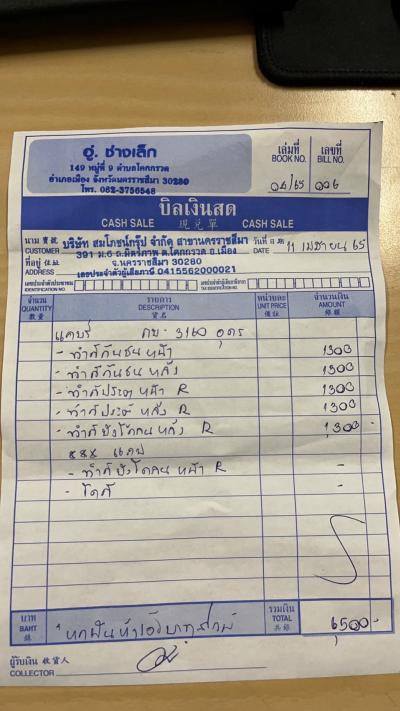 อู่ ช่างเล็ก
149 หมู่ที่ 9 ตำบลโคกกรวด
อำเภอเมือง จังหวัดนครราชสีมา 30280
โทร. 082-3756548
เล่มที่ เลขที่
BOOK NO. BILL NO.
04/65 006
บิลเงินสด
CASH SALE 現兌單 CASH SALE
นาม 寶號 บริษัท สมโภชน์กรุ๊ป จำกัด สาขานครราชสีมา วันที่ 11 เมษายน 65
CUSTOMER 391 ม.6 ถ.มิตรภาพ ต.โคกกรวด อ.เมือง DATE
ที่อยู่ 住址 จ.นครราชสีมา 30280
ADDRESS เลขประจำตัวผู้เสียภาษี 0415562000021
จำนวน รายการ หน่วยละ จำนวนเงิน
QUANTITY DESCRIPTION UNIT PRICE AMOUNT
數量 貨名 價註 銀額
แคมรี่ กบ-3160 อุดร
- ทำสีกันชน หน้า 1300
- ทำสีกันชน หลัง 1300
- ทำสีประตู หน้า R 1300
- ทำสีประตู หลัง R 1300
- ทำสีบังโคลน หลัง R 1,300 -
xxx แถม
- ทำสีบังโคลน หน้า R -
บาท รวมเงิน
BAHT TOTAL 6500-
銖 共銀
หกพันห้าร้อยบาทถ้วน
ผู้รับเงิน 收貨人
COLLECTOR